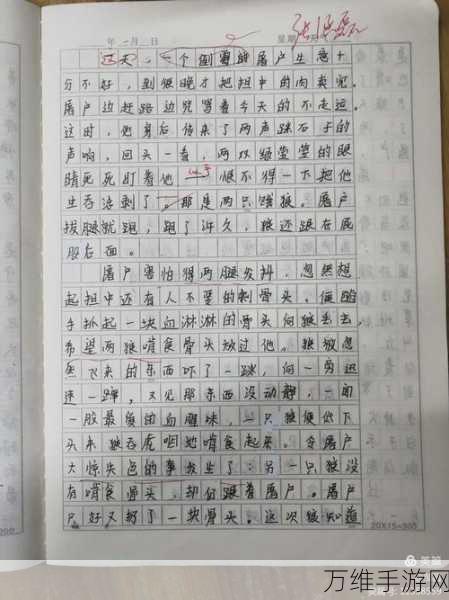 年 月 日 星期
这天,一个倒霉的屠户生意十
分不好,到很晚才把担中的肉卖完。
屠户边赶路边咒骂着今天的不走运。
这时,他身后传来了两声踩石子的
声响,回头一看,两双绿莹莹的眼
睛死死盯着他 似乎 恨不得一下把他
生吞活剥了。那是两只饿狼。屠户
拔腿就跑,跑了许久,狼还跟在屠
户后面。
屠户害怕得两腿发抖,忽然想
起担中还有人不要的剩骨头,便随
手抓起一块血淋淋的骨头向狼丢去,
希望两狼啃食骨头放过他。狼被忽
然飞来的东西吓了一跳,向一旁迅
速一蹿,又见那东西没动静,一闻
一股最爱的血腥味,一只狼便低下
头来狼吞虎咽地啃食起来。令屠户
大惊失色的事发生了:另一只狼没
有啃食骨头,却仍跟着屠户。屠户
只好又扔了一块骨头。这次狼知道
20X15=300
美篇
万维手游网